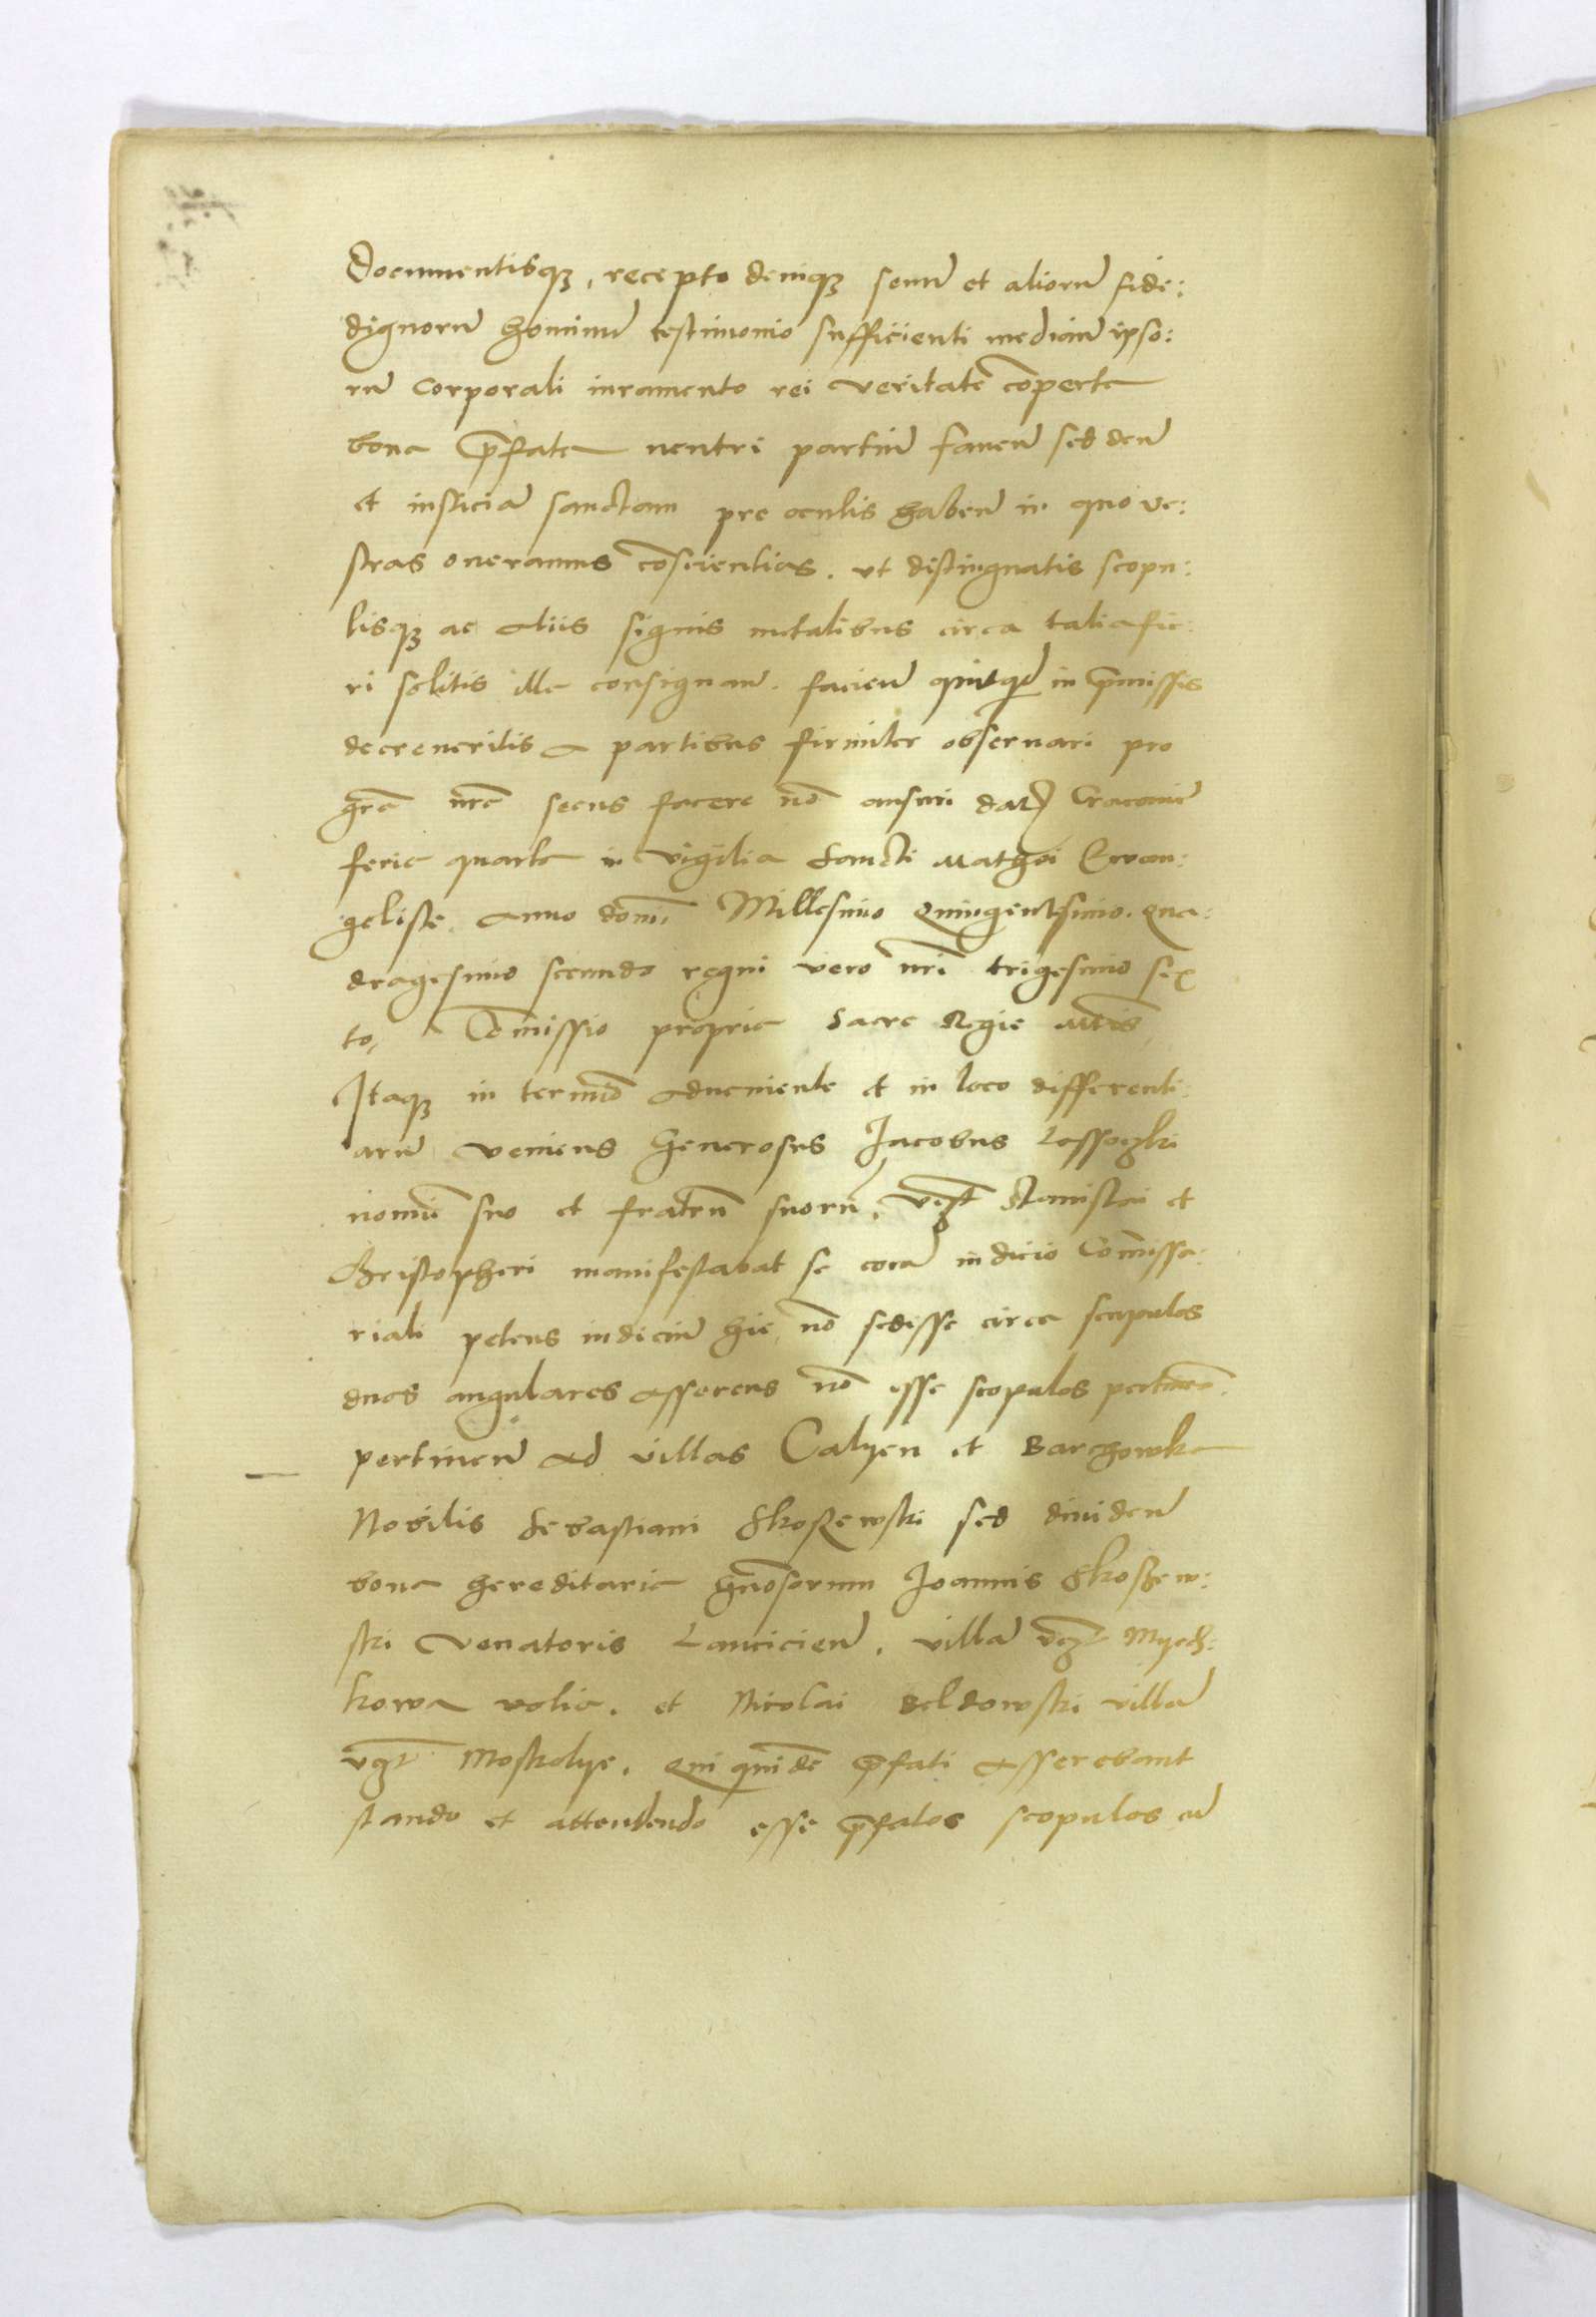 Documentisqꝫ, recepto deniqꝫ senum̄ et aliorum̄ fide:
dignorum̄ hominum̄ testimonio sufficienti median̄ ipso:
rum̄ corporali iuramento rei veritatē cōperta
bona p̄fata neutri partium̄ fauen̄ sed deum̄
et iusticiam̄ sanctam pre oculis haben̄ in quo ve:
stras oneramus cōscientias. vt distinguatis scopu:
lisqꝫ ac aliis signis metalibus circa talia fie:
ri solitis illa consignan̄. facien̄ quitqd̄ in p̄missis
decreueritis a partibus firmiter obseruari pro
grā nrā secus facere nō ausuri dat̄ Cracouie
feria quarta in vigilia Sancti Mathei Ewan:
geliste. Anno domī Millesimo Quingentesimo. Qua:
dragesimo secundo regni vero nrī trigesimo sex
to, Cōmissio propria Sacre Regie Mtis
Itaqꝫ in terminō adueniente et in loco differenti:
arum̄ veniens Generosus Jacobus Lassoczki
nomīe suo et fratrum̄ suorum̄, vʒt Stanislai et
Christopheri manifestabat se coram̄ iudicio Commissa:
riali petens iudicium̄ hic nō sedisse circa scopulos
duos angulares asserens nō esse scopulos
pertinen̄ ad villas Calyen et Barchowka
Nobilis Sebastiani Skoszewski sed diuiden̄
bona hereditaria gnōsorum Joannis Skoszew:
ski Venatoris Lancicien̄. villam̄ vʒt Myech:
kowa volia. et Nicolai deldowski villam̄
vʒt Moskolye. Qui quidē p̄fati asserebant
stando et attendendo esse p̄fatos scopulos cum̄